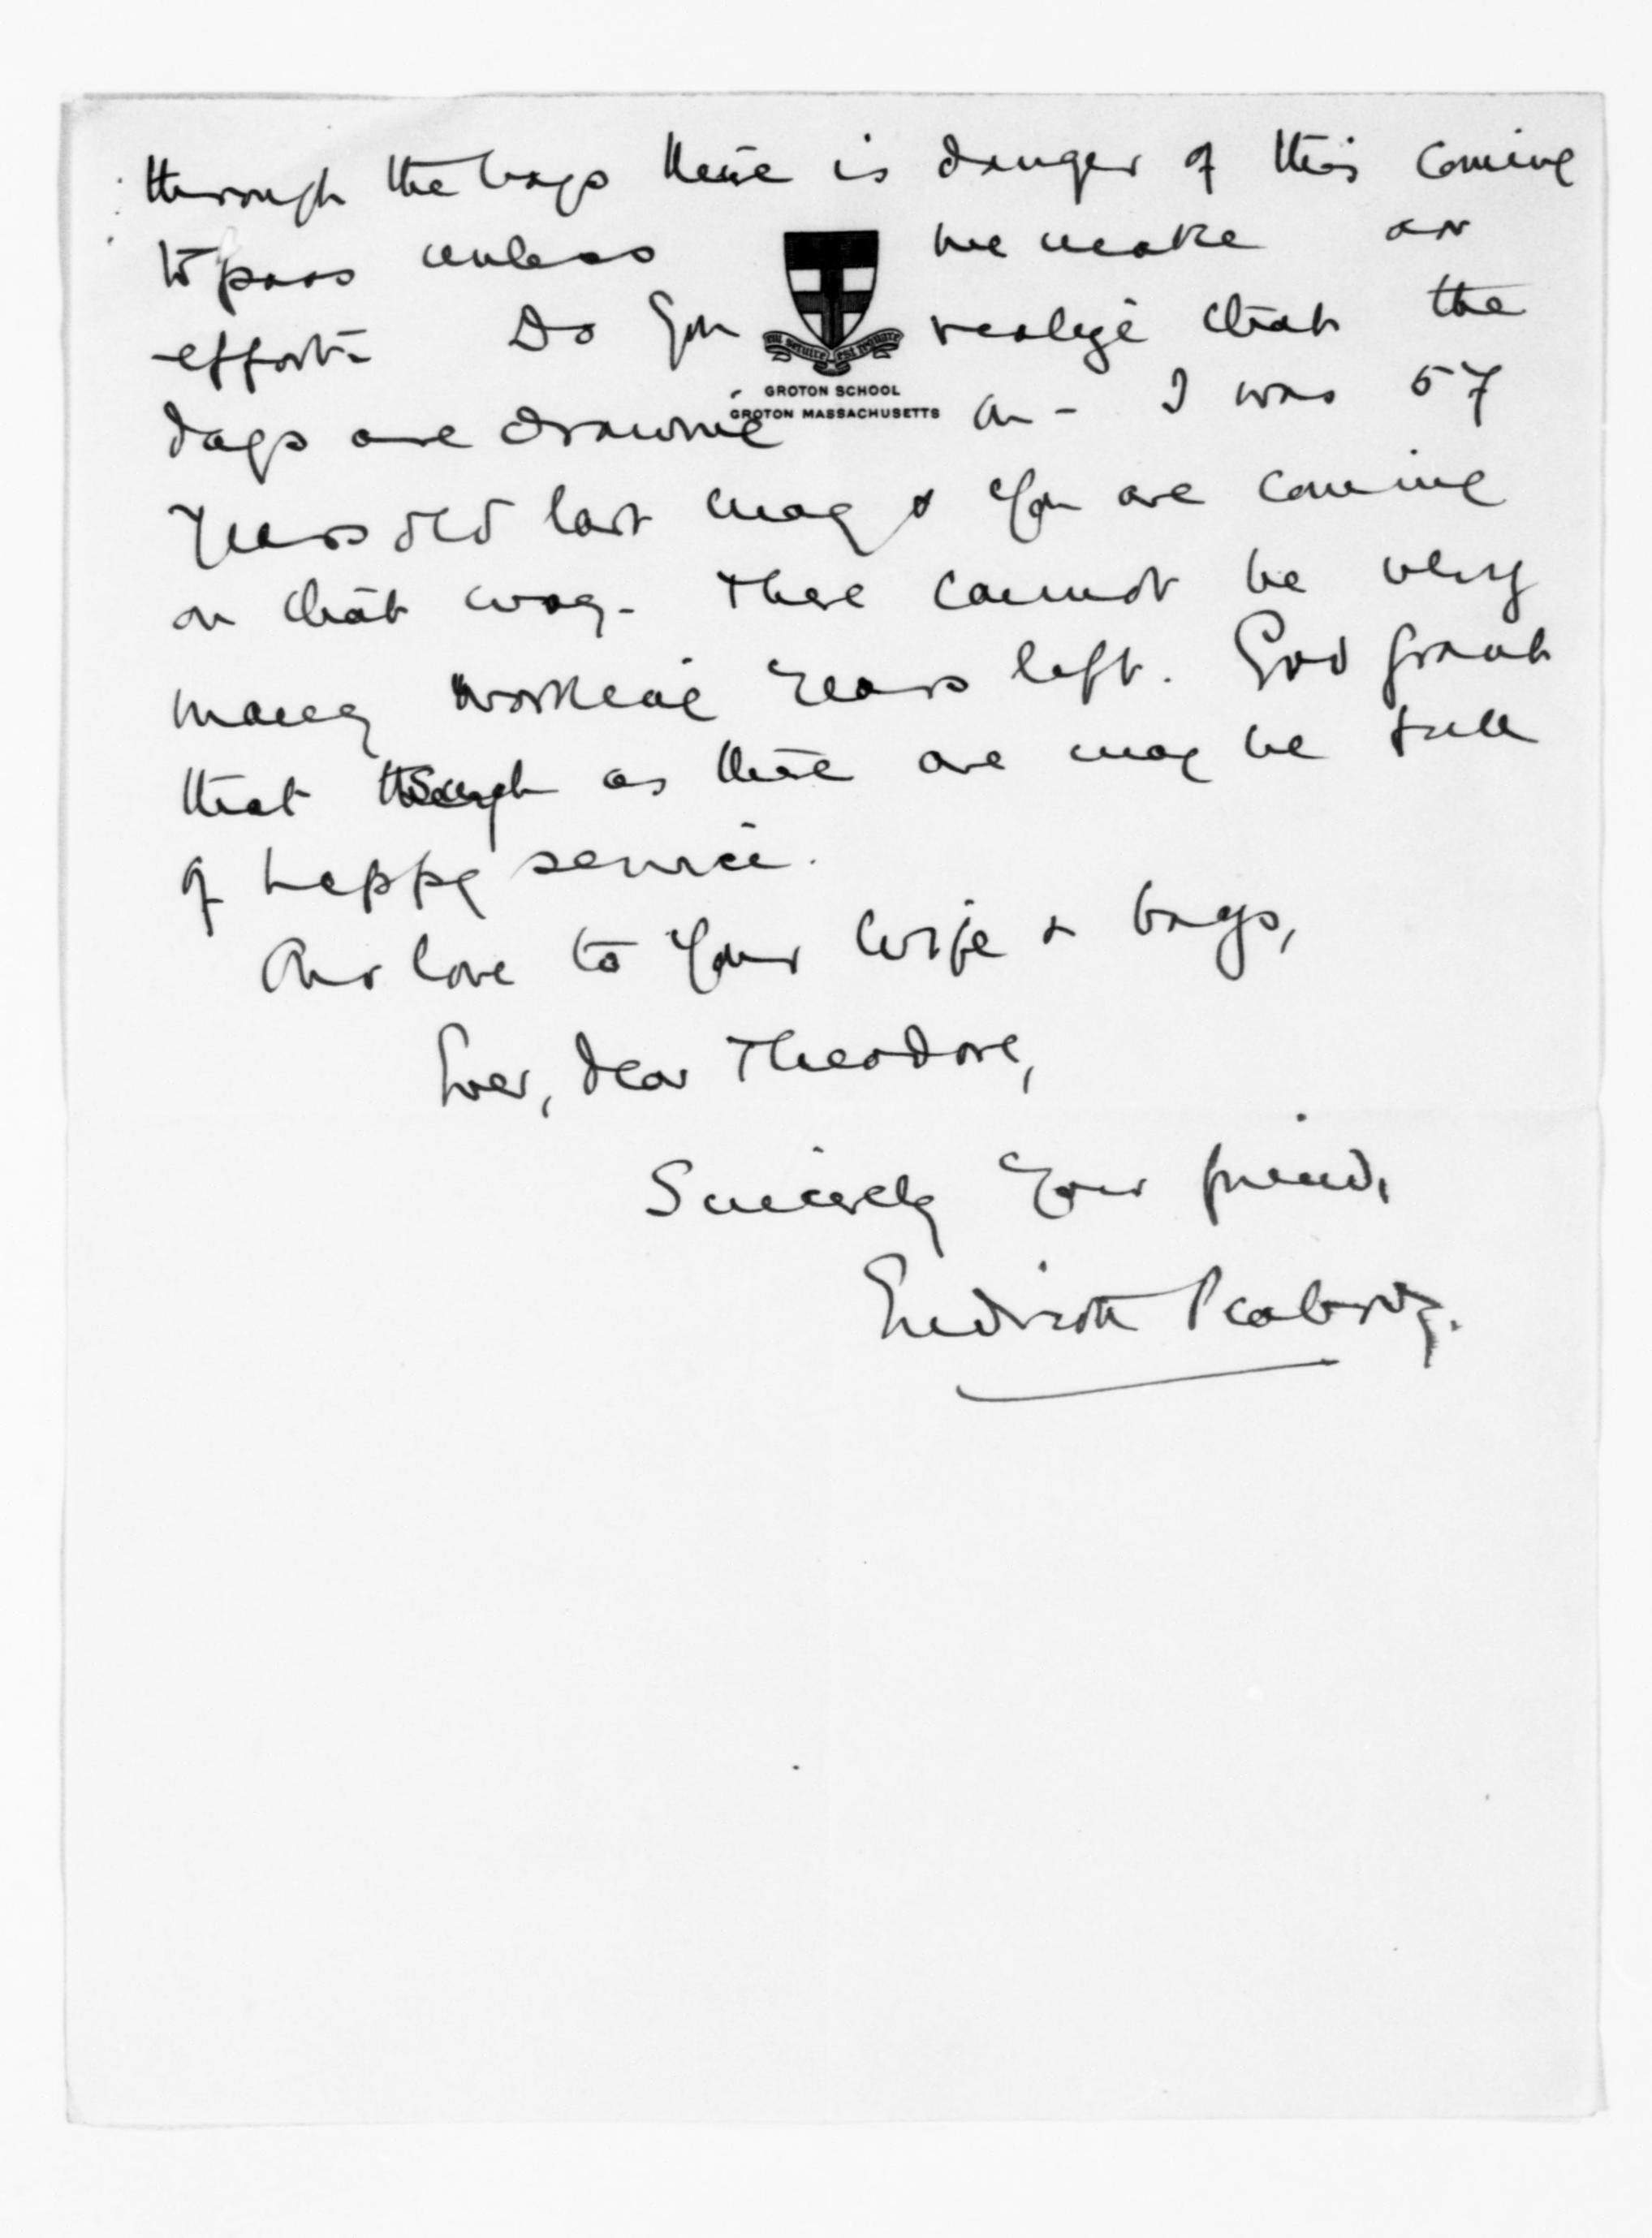 through the boys there is danger of this coming
to pass unless we make an
effort- Do you realize that the
cui servire est regnare
GROTON SCHOOL
GROTON MASSACHUSETTS
days are drawing on - I was 57
years old last May & you are coming
on that way - There cannot be very
many working years left. God grant
that such as there are may be full
of happy service.
Our love to your wife & boys,
Ever, dear Theodore,
Sincerely your friend,
Endicott Peabody.